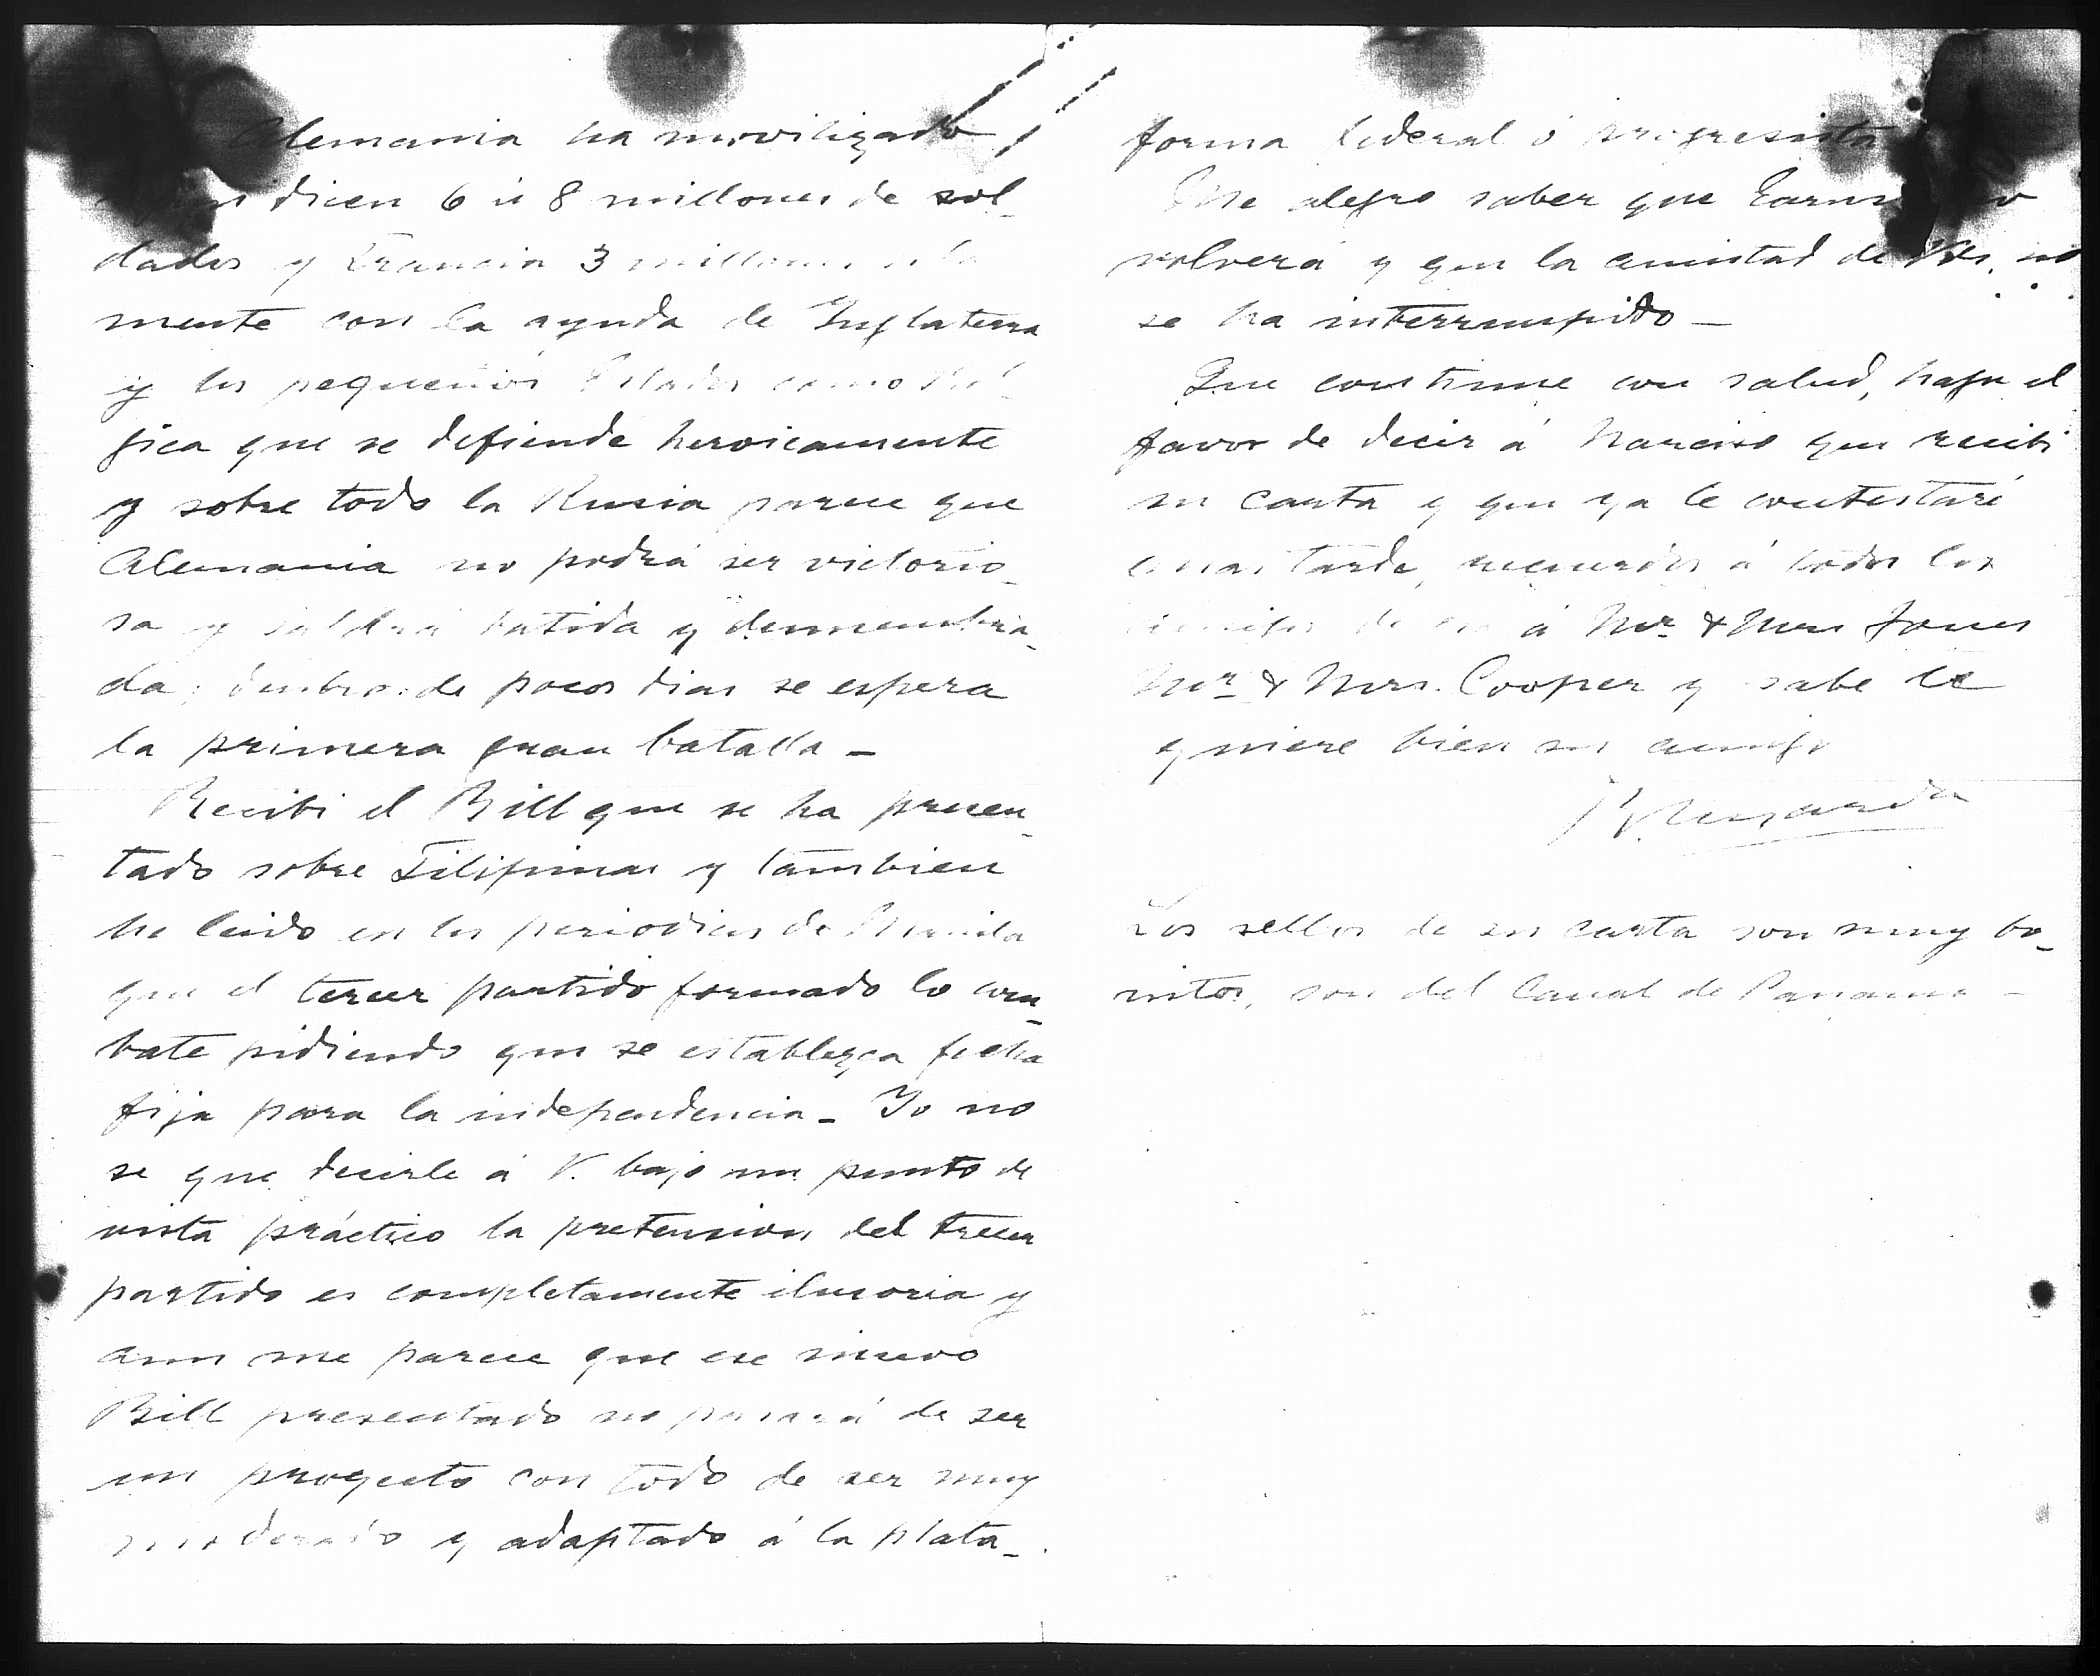 Alemania ha movilizado
dicen 6 ú 8 millones de sol-
dados y Francia 3 millones sola
mente con la ayuda de Inglaterra
y los pequeños Estados como Bél-
gica que se defiende heroicamente
y sobre todo la Rusia parece que
Alemania no podrá ser victorio-
sa y saldrá batida y desmembra-
da; dentro de pocos dias se espera
la primera gran batalla -
Recibi el Bill que se ha presen-
tado sobre Filipinas y tambien
he leido en los periodicos de Manila
que el tercer partido formado lo com-
bate pidiendo que se establezca fecha
fija para la independencia - Yo no
se que decirle á V. bajo un punto de
vista práctico la pretension del tercer
partido es completamente ilusoria y
aun me parece que ese nuevo
Bill presentado no pasará de ser
un proyecto con todo de ser muy
moderado y adaptado á la plata-
forma liberal ó progresista
Me alegro saber que
volverá y que la amistad de Vds. no
se ha interrumpido -
Que continue con salud, haga el
favor de decir á Narciso que recibi
su carta y que ya le contestaré
mas tarde, recuerdos á todos los
amigos á Mr. & Mrs Jones
Mr. & Mrs. Cooper y sabe le
quiere bien su amigo
Los sellos de su carta son muy bo-
nitos, son del Canal de Panama -